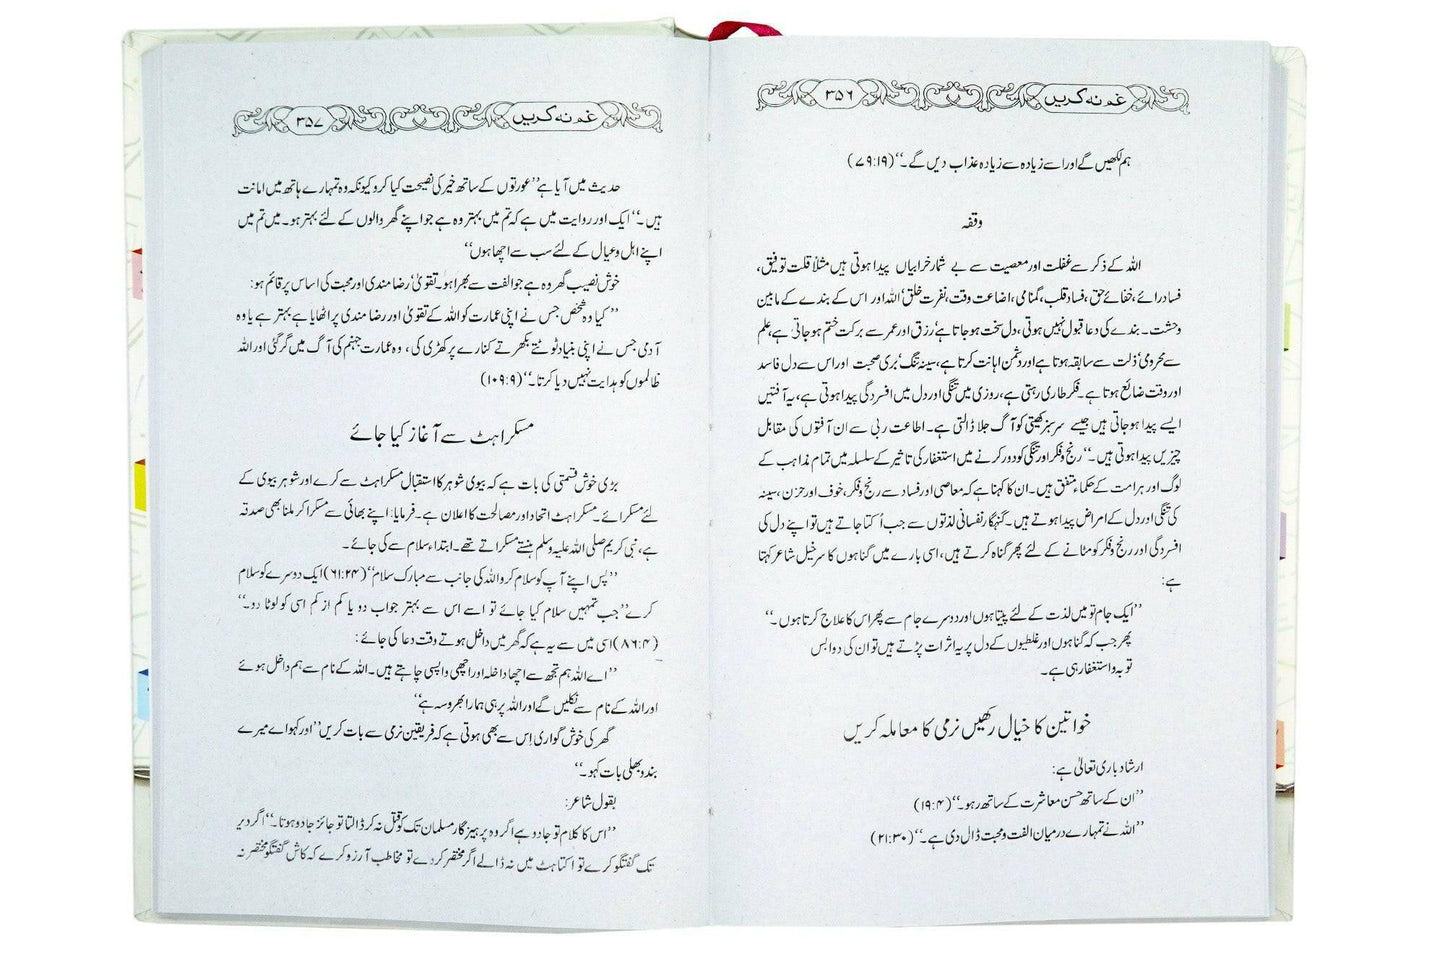 غم نہ کریں
۳۵۶
ہم لکھیں گے اور اسے زیادہ سے زیادہ عذاب دیں گے۔‘‘ (۷۹:۱۹)
وقفہ
اللہ کے ذکر سے غفلت اور معصیت سے بے شمار خرابیاں پیدا ہوتی ہیں مثلاً قلت توفیق،
فساد رائے، خفائے حق، فساد قلب، گمنامی، اضاعت وقت، نفرت خلق‘ اللہ اور اس کے بندے کے مابین
وحشت۔ بندے کی دعا قبول نہیں ہوتی، دل سخت ہوجاتا ہے‘ رزق اور عمر سے برکت ختم ہوجاتی ہے‘ علم
سے محرومی‘ ذلت سے سابقہ ہوتا ہے اور دشمن اہانت کرتا ہے، سینہ تنگ‘ بری صحبت اور اس سے دل فاسد
اور وقت ضائع ہوتا ہے۔ فکر طاری رہتی ہے، روزی میں تنگی اور دل میں افسردگی پیدا ہوتی ہے، یہ آفتیں
ایسے پیدا ہوجاتی ہیں جیسے سرسبز کھیتی کو آگ جلا ڈالتی ہے۔ اطاعت ربی سے ان آفتوں کی مقابل
چیزیں پیدا ہوتی ہیں۔‘‘ رنج و فکر اور تنگی کو دور کرنے میں استغفار کی تاثیر کے سلسلہ میں تمام مذاہب کے
لوگ اور ہر امت کے حکماء متفق ہیں۔ ان کا کہنا ہے کہ معاصی اور فساد سے رنج و فکر، خوف اور حزن، سینہ
کی تنگی اور دل کے امراض پیدا ہوتے ہیں۔ گنہگار نفسانی لذتوں سے جب اُکتا جاتے ہیں تو اپنے دل کی
افسردگی اور رنج و فکر کو مٹانے کے لئے پھر گناہ کرتے ہیں، اسی بارے میں گناہوں کا سرخیل شاعر کہتا
ہے:
’’ایک جام تو میں لذت کے لئے پیتا ہوں اور دوسرے جام سے پھر اس کا علاج کرتا ہوں۔‘‘
پھر جب کہ گناہوں اور غلطیوں کے دل پر یہ اثرات پڑتے ہیں تو ان کی دوا بس
توبہ و استغفار ہی ہے۔
خواتین کا خیال رکھیں نرمی کا معاملہ کریں
ارشاد باری تعالیٰ ہے:
’’ان کے ساتھ حسن معاشرت کے ساتھ رہو۔‘‘ (۱۹:۴)
’’اللہ نے تمہارے درمیان الفت و محبت ڈال دی ہے۔‘‘ (۲۱:۳۰)
غم نہ کریں
۳۵۷
حدیث میں آیا ہے’’عورتوں کے ساتھ خیر کی نصیحت کیا کرو کیونکہ وہ تمہارے ہاتھ میں امانت
ہیں۔‘‘ ایک اور روایت میں ہے کہ تم میں بہتر وہ ہے جو اپنے گھر والوں کے لئے بہتر ہو۔ میں تم میں
اپنے اہل و عیال کے لئے سب سے اچھا ہوں‘‘
خوش نصیب گھر وہ ہے جو الفت سے بھرا ہو۔ تقویٰ‘ رضامندی اور محبت کی اساس پر قائم ہو:
’’کیا وہ شخص جس نے اپنی عمارت کو اللہ کے تقویٰ اور رضامندی پر اٹھایا ہے بہتر ہے یا وہ
آدمی جس نے اپنی بنیاد ٹوٹتے بکھرتے کنارے پر کھڑی کی، وہ عمارت جہنم کی آگ میں گرگئی اور اللہ
ظالموں کو ہدایت نہیں دیا کرتا۔‘‘ (۱۰۹:۹)
مسکراہٹ سے آغاز کیا جائے
بڑی خوش قسمتی کی بات ہے کہ بیوی شوہر کا استقبال مسکراہٹ سے کرے اور شوہر بیوی کے
لئے مسکرائے۔ مسکراہٹ اتحاد اور مصالحت کا اعلان ہے۔ فرمایا: اپنے بھائی سے مسکرا کر ملنا بھی صدقہ
ہے، نبی کریم صلی اللہ علیہ وسلم ہنستے مسکراتے تھے۔ ابتداء سلام سے کی جائے۔
’’پس اپنے آپ کو سلام کرو اللہ کی جانب سے مبارک سلام‘‘ (۶۱:۲۴) ایک دوسرے کو سلام
کرے’’جب تمہیں سلام کیا جائے تو اسے اس سے بہتر جواب دو یا کم از کم اسی کو لوٹا دو۔‘‘
(۸۶:۴) اسی میں سے یہ ہے کہ گھر میں داخل ہوتے وقت دعا کی جائے:
’’اے اللہ ہم تجھ سے اچھا داخلہ اور اچھی واپسی چاہتے ہیں۔ اللہ کے نام سے ہم داخل ہوئے
اور اللہ کے نام سے نکلیں گے اور اللہ پر ہی ہمارا بھروسہ ہے‘‘
گھر کی خوش گواری اِس سے بھی ہوتی ہے کہ فریقین نرمی سے بات کریں’’اور کہو اے میرے
بندو بھلی بات کہو۔‘‘
بقول شاعر:
’’اس کا کلام تو جادو ہے اگر وہ پرہیزگار مسلمان تک کو قتل نہ کر ڈالتا تو جائز جادو ہوتا۔‘‘ اگر دیر
تک گفتگو کرے تو اکتاہٹ میں نہ ڈالے اگر مختصر کر دے تو مخاطب آرزو کرے کہ کاش گفتگو مختصر نہ